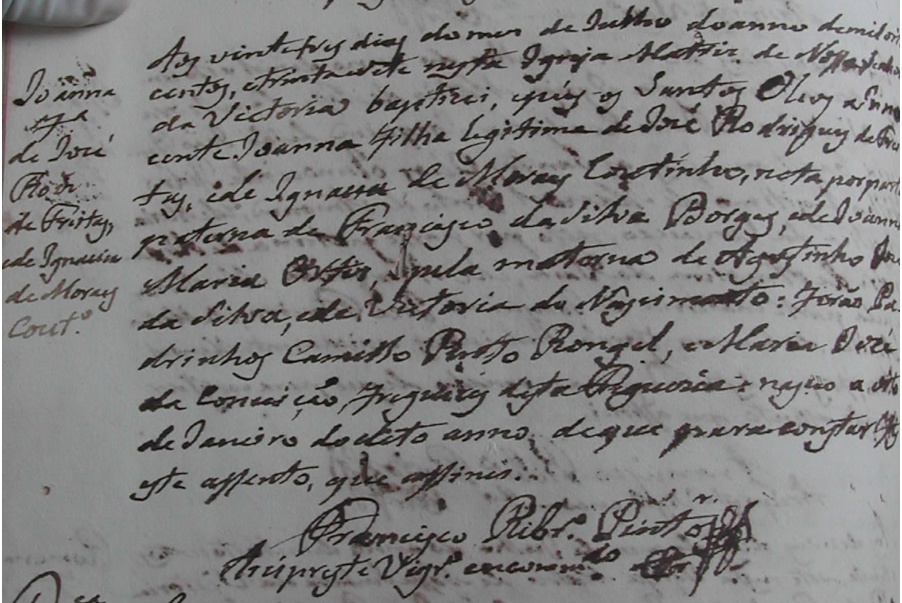 Joanna
fª
de José
Rodr.
de Freitas,
e de Ignacia
de Moraes
Cout.º
Aos vinte tres dias do mes de Julho do anno de mil oito
centos, e trinta e sete nesta Igreja Matriz de Nossa Senhora
da Victoria baptizei, e pus os Santos Oleos a inno
cente Joanna filha legitima de José Rodrigues de Frei
tas, e de Ignacia de Moraes Coutinho, neta por parte
paterna de Francisco da Silva Borges, e de Joanna
Maria e pela materna de Agostinho José
da Silva, e de Victoria do Nascimento: forão Pa
drinhos Camillo Pinto Rangel, e Maria José
da Conceição, freguezes desta Freguezia: nasceo a oito
de Janeiro do dito anno, de que para constar fiz
este assento, que assinei.
Francisco Ribr.º Pinto
Arcipreste Vigr.º encommdo